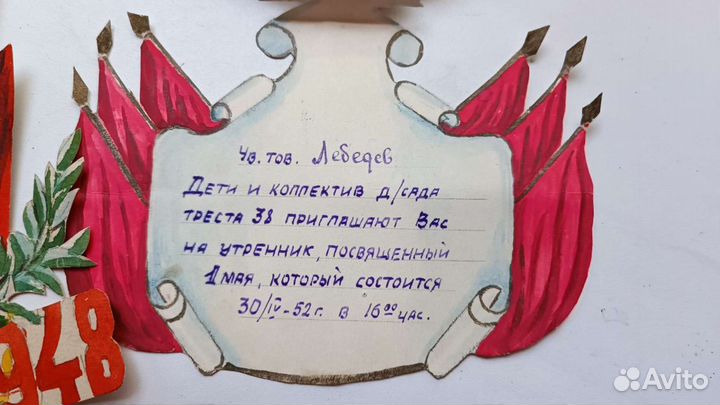 Ув. тов. Лебедев
Дети и коллектив д/сада
треста 38 приглашают Вас
на утренник, посвященный
1 мая, который состоится
30/IV-52 г. в 16 00 час.
1948
Avito